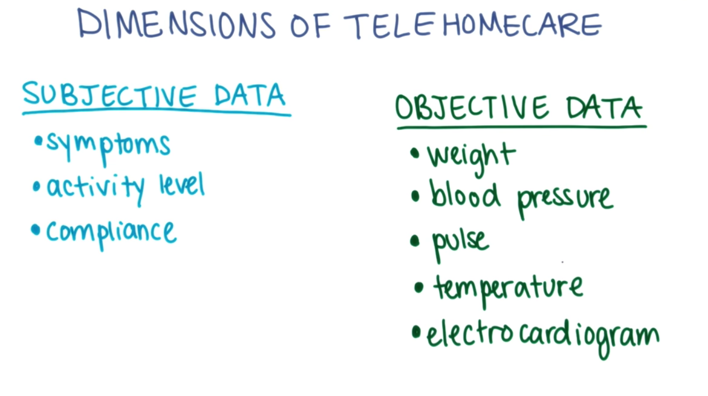 DIMENSIONS OF TELEHOMECARE
SUBJECTIVE DATA
• symptoms
• activity level
• compliance
OBJECTIVE DATA
• weight
• blood pressure
• pulse
• temperature
• electrocardiogram